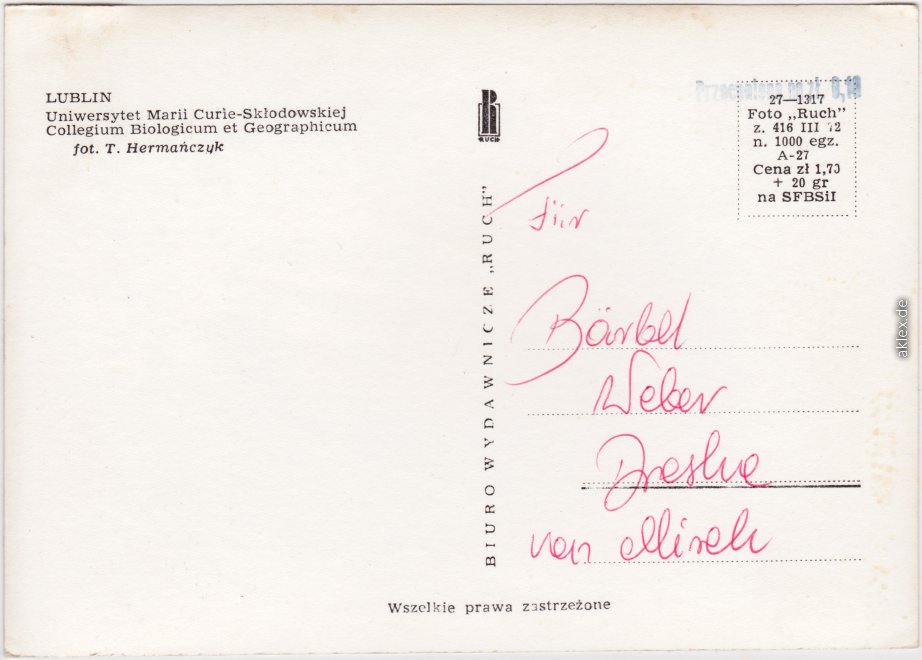 LUBLIN
Uniwersytet Marii Curie-Skłodowskiej
Collegium Biologicum et Geographicum
fot. T. Hermańczyk
RUCH
BIURO WYDAWNICZE „RUCH”
Przeceniono na zł 0,10
27—1317
Foto „Ruch”
z. 416 III 72
n. 1000 egz.
A-27
Cena zł 1,70
+ 20 gr
na SFBSiI
Für
Bärbel
Weber
von
Wszelkie prawa zastrzeżone
aklex.de